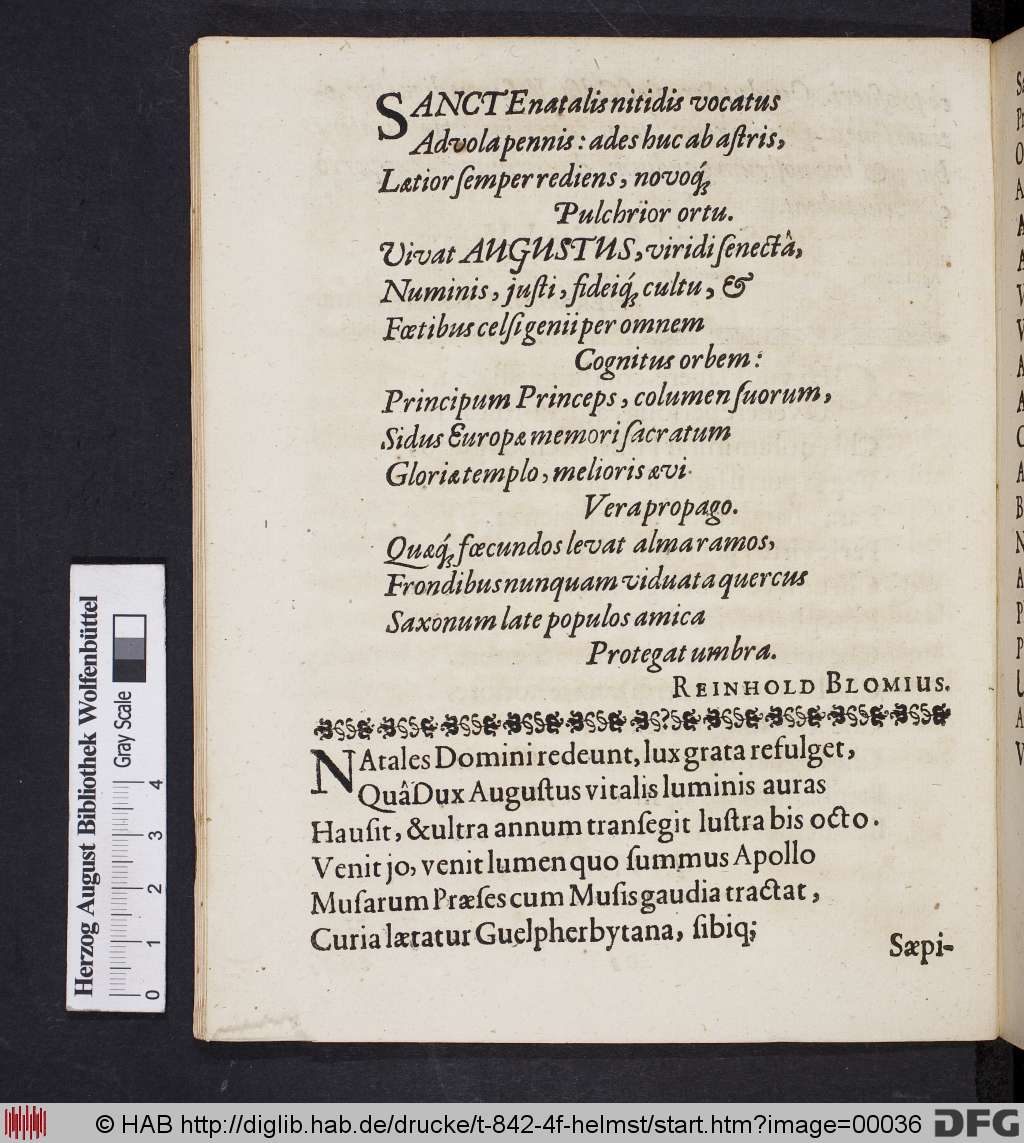 SANCTE natalis nitidis vocatus
Advola pennis: ades huc ab aſtris,
Lætior ſemper rediens, novoq́;
Pulchrior ortu.
Vivat AUGUSTUS, viridi ſenectâ,
Numinis, juſti, fideiq́; cultu, &
Fœtibus celſi genii per omnem
Cognitus orbem:
Principum Princeps, columen ſuorum,
Sidus Europæ memori ſacratum
Gloriæ templo, melioris ævi
Vera propago.
Quæq́; fœcundos levat alma ramos,
Frondibus nunquam viduata quercus
Saxonum late populos amica
Protegat umbra.
REINHOLD BLOMIUS.
NAtales Domini redeunt, lux grata refulget,
Quâ Dux Auguſtus vitalis luminis auras
Hauſit, & ultra annum tranſegit luſtra bis octo.
Venit jo, venit lumen quo ſummus Apollo
Muſarum Præſes cum Muſis gaudia tractat,
Curia lætatur Guelpherbytana, ſibiq;
Sæpi-
Herzog August Bibliothek Wolfenbüttel
Gray Scale
0 1 2 3 4
© HAB http://diglib.hab.de/drucke/t-842-4f-helmst/start.htm?image=00036
DFG